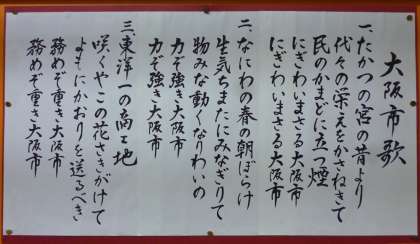 大阪市歌
一、たかつの宮の昔より
代々の栄えをかさねきて
民のかまどに立つ煙
にぎわいまさる大阪市
にぎわいまさる大阪市
二、なにわの春の朝ぼらけ
生気ちまたにみなぎりて
物みな動くなりわいの
力ぞ強き大阪市
力ぞ強き大阪市
三、東洋一の商工地
咲くやこの花さきがけて
よもにかおりを送るべき
務めぞ重き大阪市
務めぞ重き大阪市